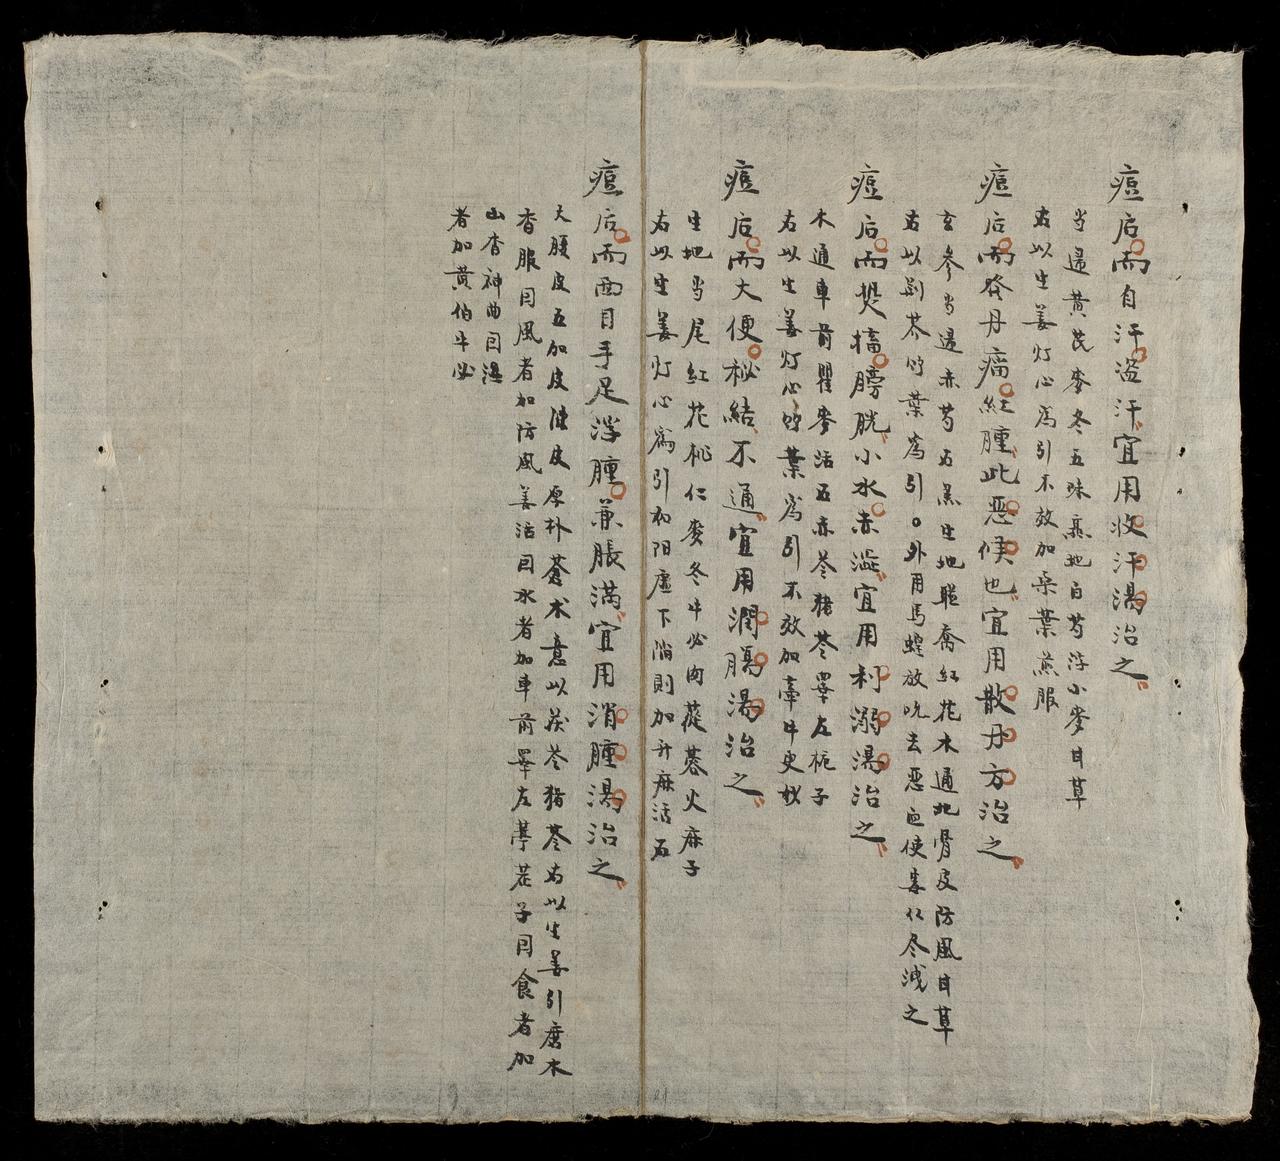 痘后而自汗盗汗宜用收汗湯治之
当归黄芪麥冬五味熟地白芍浮小麥甘草
右以生姜灯心為引不效加桑葉煎服
痘后而發丹瘤紅腫此恶候也宜用散丹方治之
玄參当归赤芍 生地 喬紅花木通地骨皮防風甘草
右以荆芥竹葉為引。外用馬蝗放吮去恶血使 尽 之
痘后而 膀胱小水赤澁宜用利溺湯治之
木通車前瞿麥活石赤苓猪苓睪左栀子
右以生姜灯心竹葉為引不效加牽牛
痘后而大便秘結不通宜用潤腸湯治之
生地当尾紅花桃仁麥冬牛必肉蓯蓉火麻子
右以生姜灯心為引如阳虚下陷則加升麻活石
痘后而面目手足浮腫兼脹满宜用消腫湯治之
大腹皮五加皮陳皮厚朴蒼术意以茯苓猪苓右以生姜引磨木
香服 風者加防風羌活 水者加車前睪左葶苈子 食者加
山查神曲 濕
者加黄伯牛必